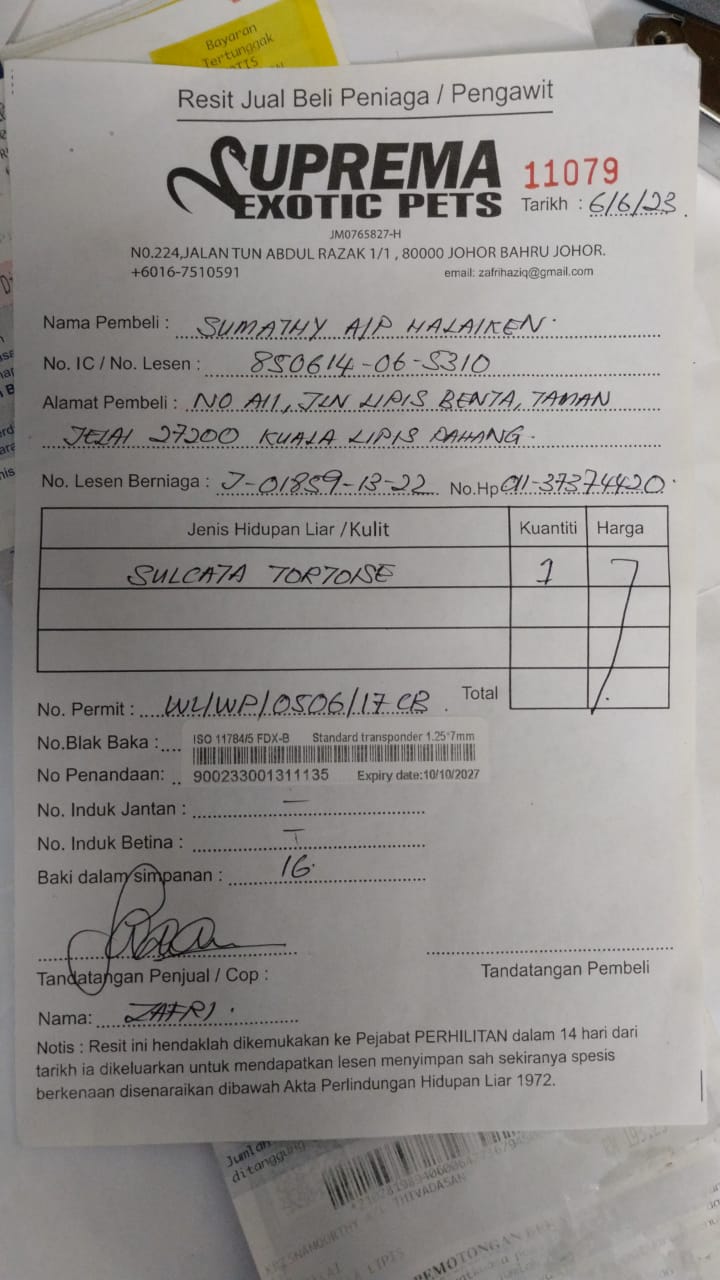 Bayaran
Tertunggak
Resit Jual Beli Peniaga / Pengawit
SUPREMA
EXOTIC PETS
11079
Tarikh : 6/6/23
JM0765827-H
N0.224,JALAN TUN ABDUL RAZAK 1/1 , 80000 JOHOR BAHRU JOHOR.
+6016-7510591 email: zafrihaziq@gmail.com
Nama Pembeli : SUMATHY A/P HALAIKEN
No. IC / No. Lesen : 850614-06-5310
Alamat Pembeli : NO A11, JLN LIPIS BENTA, TAMAN
JELAI 27200 KUALA LIPIS PAHANG.
No. Lesen Berniaga : J-01859-13-22 No.Hp 011-37374420
Jenis Hidupan Liar / Kulit Kuantiti Harga
SULCATA TORTOISE 1
Total
No. Permit : WL/WP/0506/17 CB
No.Blak Baka : ISO 11784/5 FDX-B Standard transponder 1.25*7mm
No Penandaan: 900233001311135 Expiry date:10/10/2027
No. Induk Jantan : —
No. Induk Betina :
Baki dalam simpanan : 16
Tandatangan Penjual / Cop :
Tandatangan Pembeli
Nama: ZAFRI
Notis : Resit ini hendaklah dikemukakan ke Pejabat PERHILITAN dalam 14 hari dari
tarikh ia dikeluarkan untuk mendapatkan lesen menyimpan sah sekiranya spesis
berkenaan disenaraikan dibawah Akta Perlindungan Hidupan Liar 1972.
Jumlah
ditanggung
THIVADASAN
LIPIS
PEMOTONGAN